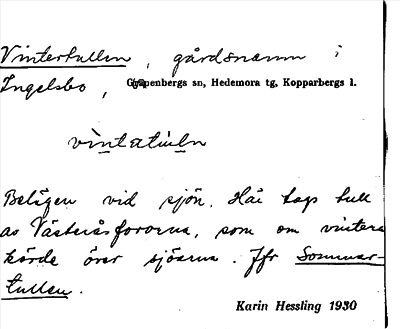 Vintertullen, gårdsnamn i
Ingelsbo, Garpenbergs sn, Hedemora tg, Kopparbergs l.
vìntətùln
Belägen vid sjön. Här togs tull
av Västeråsfororna, som om vintern
körde över sjöarna. Jfr Sommar-
tullen.
Karin Hessling 1930